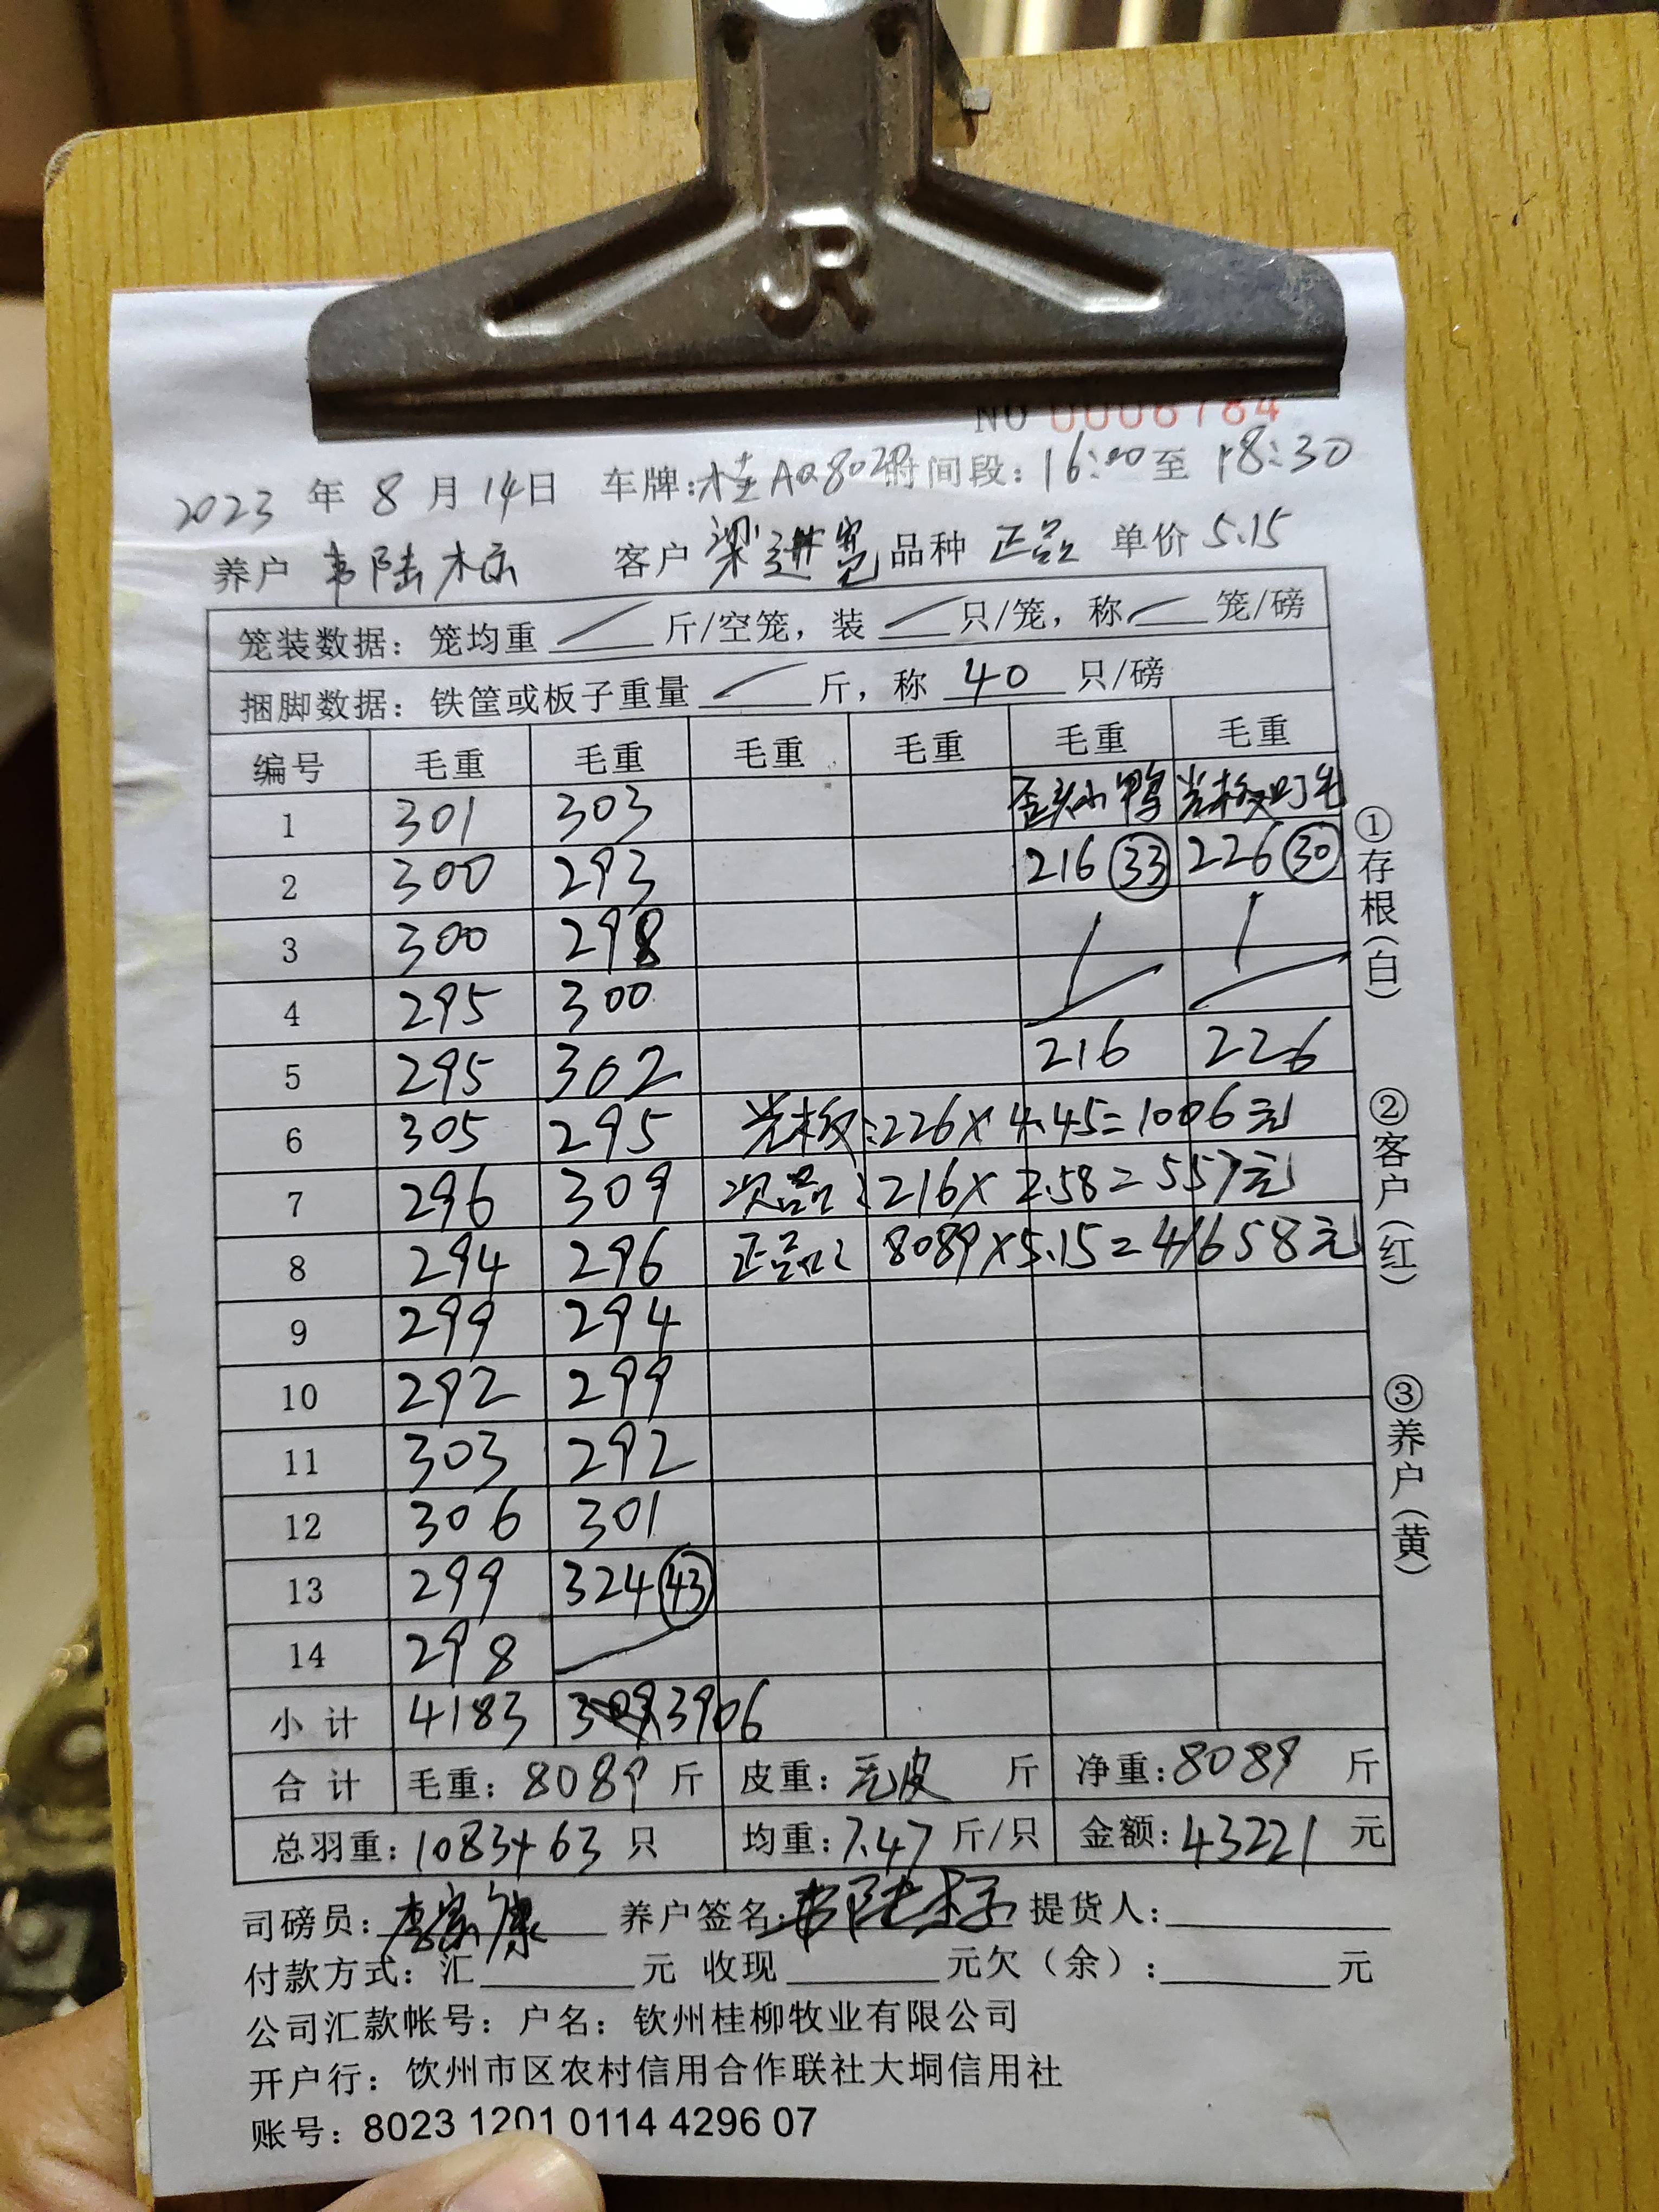 JR
NO 0006784
2023 年 8 月 14日 车牌:桂AQ802P 时间段: 16:00 至 18:30
养户 韦陆标 客户 梁进宽 品种 正品 单价 5.15
笼装数据: 笼均重 斤/空笼, 装 只/笼, 称 笼/磅
捆脚数据: 铁筐或板子重量 斤, 称 40 只/磅
编号 毛重 毛重 毛重 毛重 毛重 毛重
1 301 303 歪头小鸭 光板叮毛
2 300 293 216 33 226 30
3 300 298
4 295 300
5 295 302 216 226
6 305 295 光板:226×4.45=1006元
7 296 309 次品:216×2.58=557元
8 294 296 正品: 8089×5.15=41658元
9 299 294
10 292 299
11 303 292
12 306 301
13 299 324 43
14 298
小 计 4183 3906
合 计 毛重: 8089 斤 皮重: 无皮 斤 净重:8089 斤
总羽重: 1083+63 只 均重:7.47 斤/只 金额:43221 元
司磅员: 养户签名:韦陆标 提货人:
付款方式: 汇 元 收现 元欠(余): 元
公司汇款帐号: 户名: 钦州桂柳牧业有限公司
开户行: 钦州市区农村信用合作联社大垌信用社
账号: 8023 1201 0114 4296 07
①存根(白)
②客户(红)
③养户(黄)